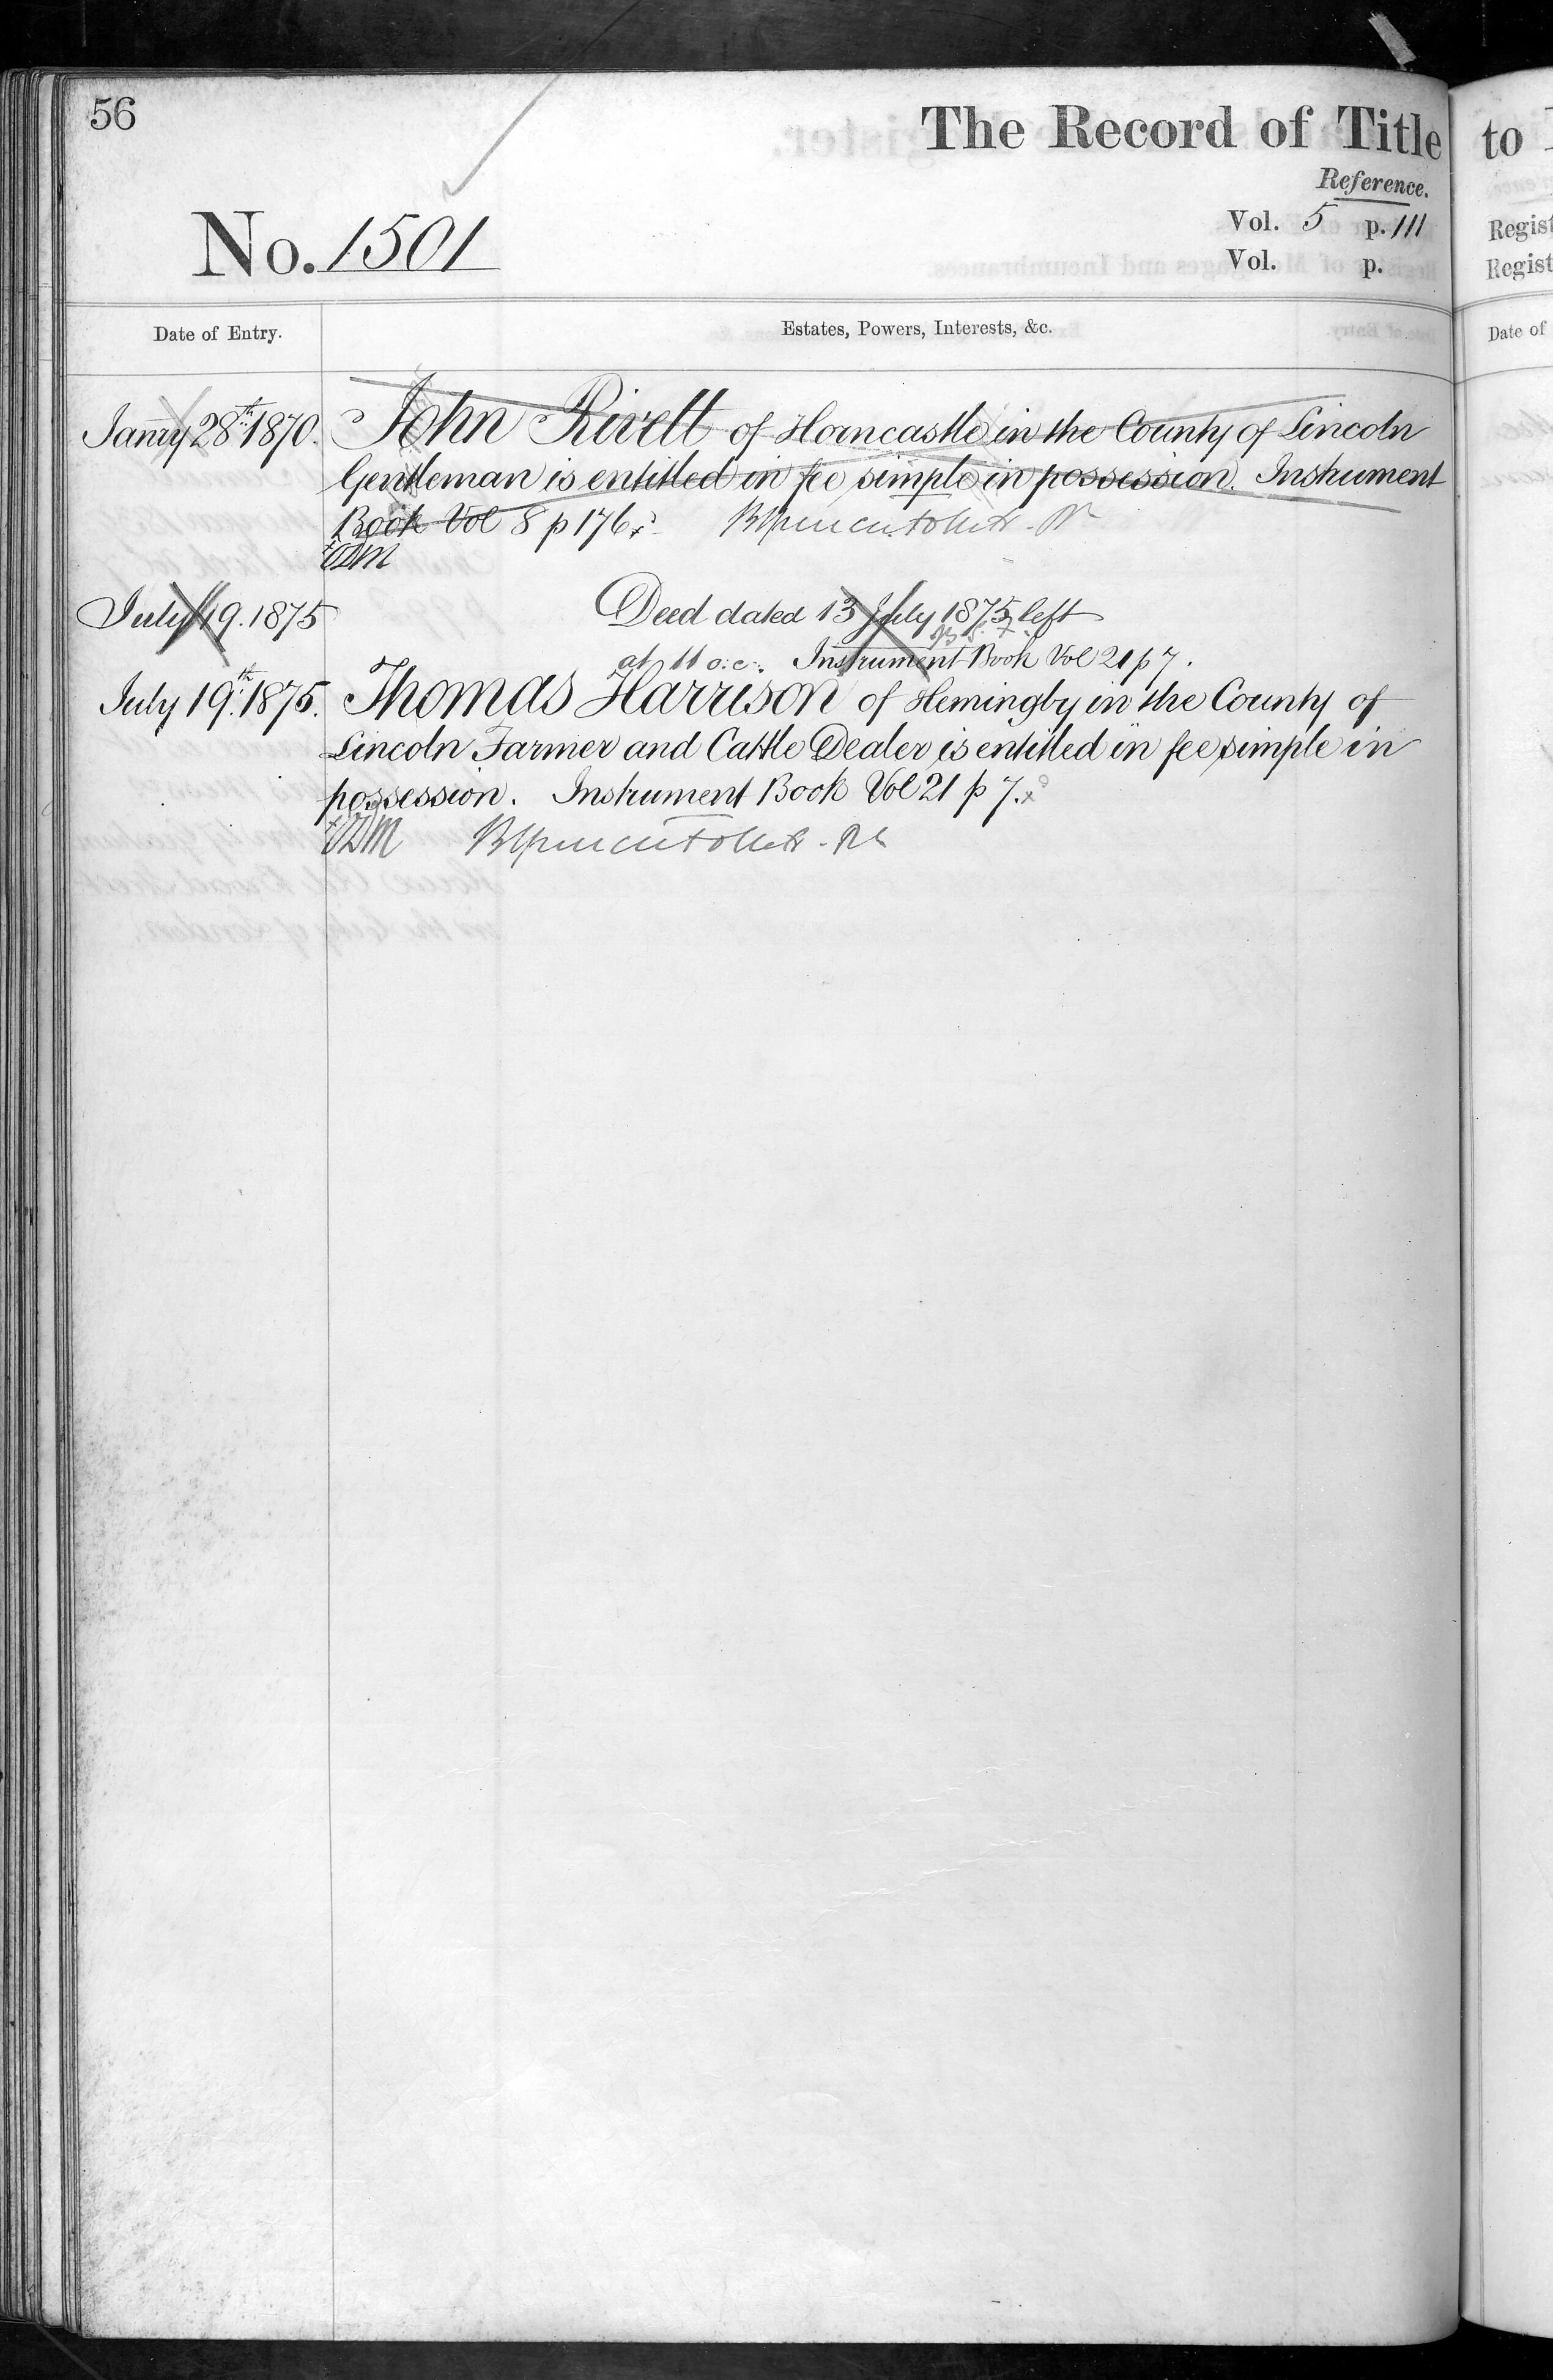 56
The Record of Title
Reference.
Vol. 5 p. 111
Vol. p.
No. 1501
Date of Entry.
Estates, Powers, Interests, &c.
Janry 28th 1870. John Rivett of Horncastle in the County of Lincoln
Gentleman is entitled in fee simple in possession. Instrument
Book Vol 8 p 176.
July 19. 1875 Deed dated 13 July 1875 left
at 11 o.c. Instrument Book Vol 21 p 7.
July 19th 1875. Thomas Harrison of Hemingby in the County of
Lincoln Farmer and Cattle Dealer is entitled in fee simple in
possession. Instrument Book Vol 21 p 7.
to
Regist
Regist
Date of